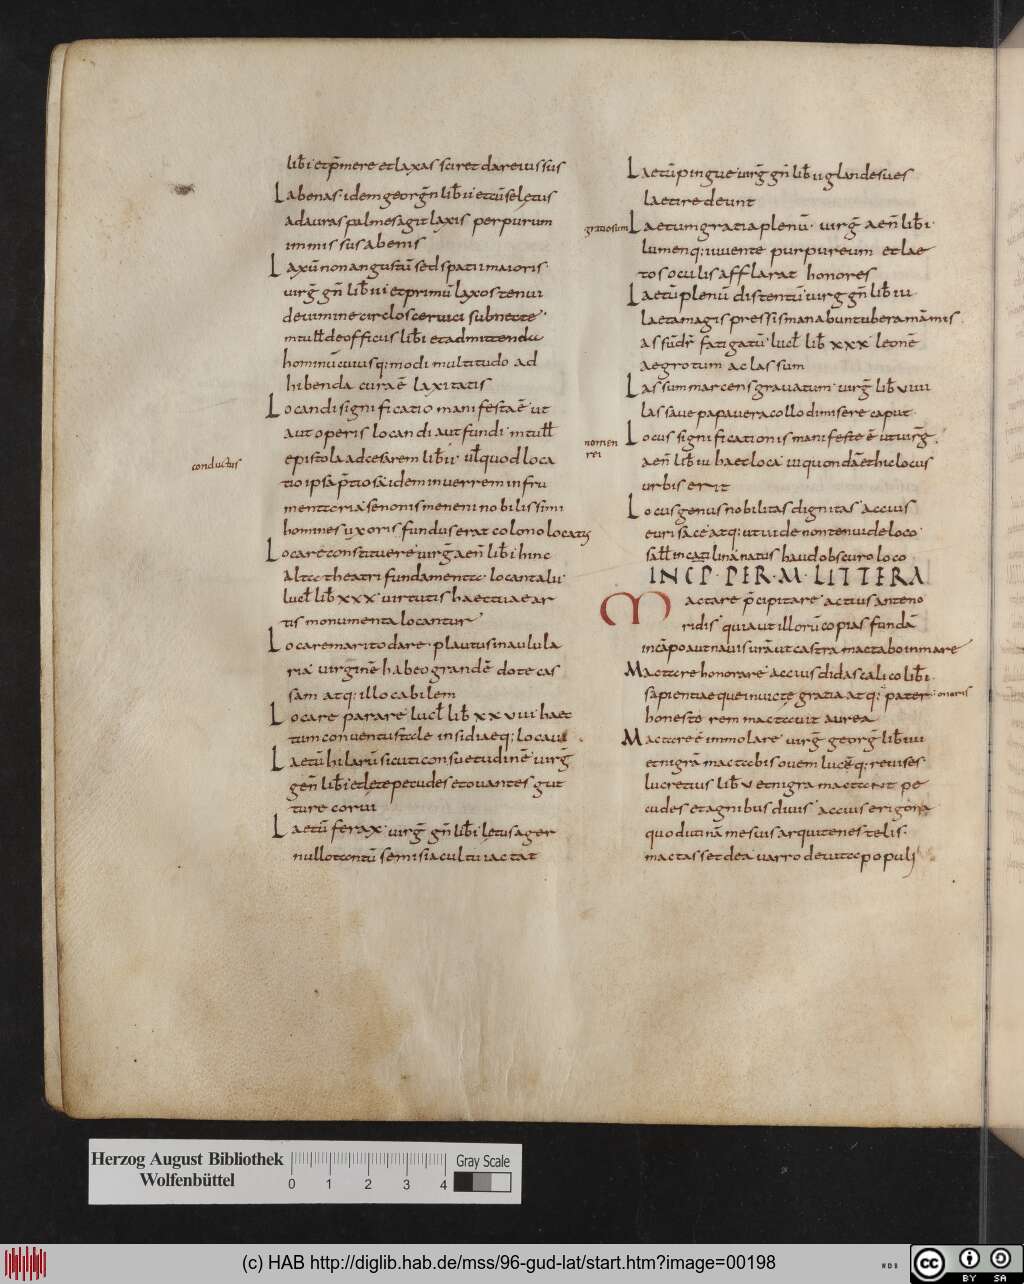 lib̄ i et p̄mere et laxas sciret dare iussus
Labenas · idem georḡn lib̄ ii et cū se letus
ad auras palmes agit laxis per purum
immissus abenis
Laxū non angustū sed spatii maioris ·
uirḡ gn̄ lib̄ iii et primū laxos tenui
de uimine circlos ceruici subnecte ·
mtull̄ de officiis lib̄ i et admittenda
hominū cuiusq; modi multitudo ad
hibenda cura ē laxitatis
Locandi significatio manifesta ē ut
aut operis locandi aut fundi · mtull̄
conductus
epistola ad cesarem lib̄ ii · ul̄ quod loca
tio ipsa p̄tiosa idem in uerrem in fru
mentaria senonis meneni nobilissimi
hominis uxoris fundus erat colono locatus
Locare constituere uirḡ aen̄ lib̄ i hinc
alta theatri fundamenta locant alii ·
lucl̄ lib̄ xxx uirtutis haec tuae ar
tis monumenta locantur
Locare marito dare · plautus in aulula
ria uirginē habeo grandē dote cas
sam atq; illocabilem
Locare parare lucl̄ lib̄ xxviii haec
tum conuentus tela insidiaeq; locau
Laetū hilarū sicuti consuetudinē uirḡ
gen̄ lib̄ i et lete pecudes et ouantes gut
ture corui
Laetū ferax · uirḡ gn̄ lib̄ i letus ager
nullo tantū se misia cultu iactat
Laetū pingue uirḡ gn̄ lib̄ ii glande sues
laeti redeunt
gratiosum
Laetum gratia plenū · uirḡ aen̄ lib̄ i ·
lumenq; iuuente purpureum et lae
tos oculis afflarat honores
Laetū plenū distentū uirḡ gn̄ lib̄ iii ·
laeta magis pressis manabunt ubera māmis ·
assūdr̄ fatigatū · lucl̄ lib̄ xxx leonē
aegrotum ac lassum
Lassum marcens grauatum · uirḡ lib̄ viiii
lassaue papauera collo dimisere caput ·
nomen
rei
Locus significationis manifeste ē ut uirḡ ·
aen̄ lib̄ iii haec loca ui quondā et hic locus
urbis erit
Locus genus nobilitas dignitas accius
eurisace atq; ut uide non tenui de loco ·
sall̄ in catilina natus haud obscuro loco
INCP · PER · M · LITTERA
Mactare p̄cipitare accius anteno
ridis quiaut illorū copias fundā
in cāpo aut nauis urā ut castra mactabo in mare
Mactare honorare accius didascalico lib̄ i ·
sapientiaeque inuicte gratia atq; pater · onoris
honeste rem mactauit aurea
Mactare ē immolare uirḡ georḡ lib̄ iiii
et nigrā mactabis ouem lucēq; reuises
lucretius lib̄ v et nigra mactant pe
cudes et agnibus diuis accius erigona
quod utinā me suis arquitenes telis ·
mactasset dea uarro de uita populi
Herzog August Bibliothek
Wolfenbüttel
0 1 2 3 4
Gray Scale
(c) HAB http://diglib.hab.de/mss/96-gud-lat/start.htm?image=00198
WDB
cc BY SA